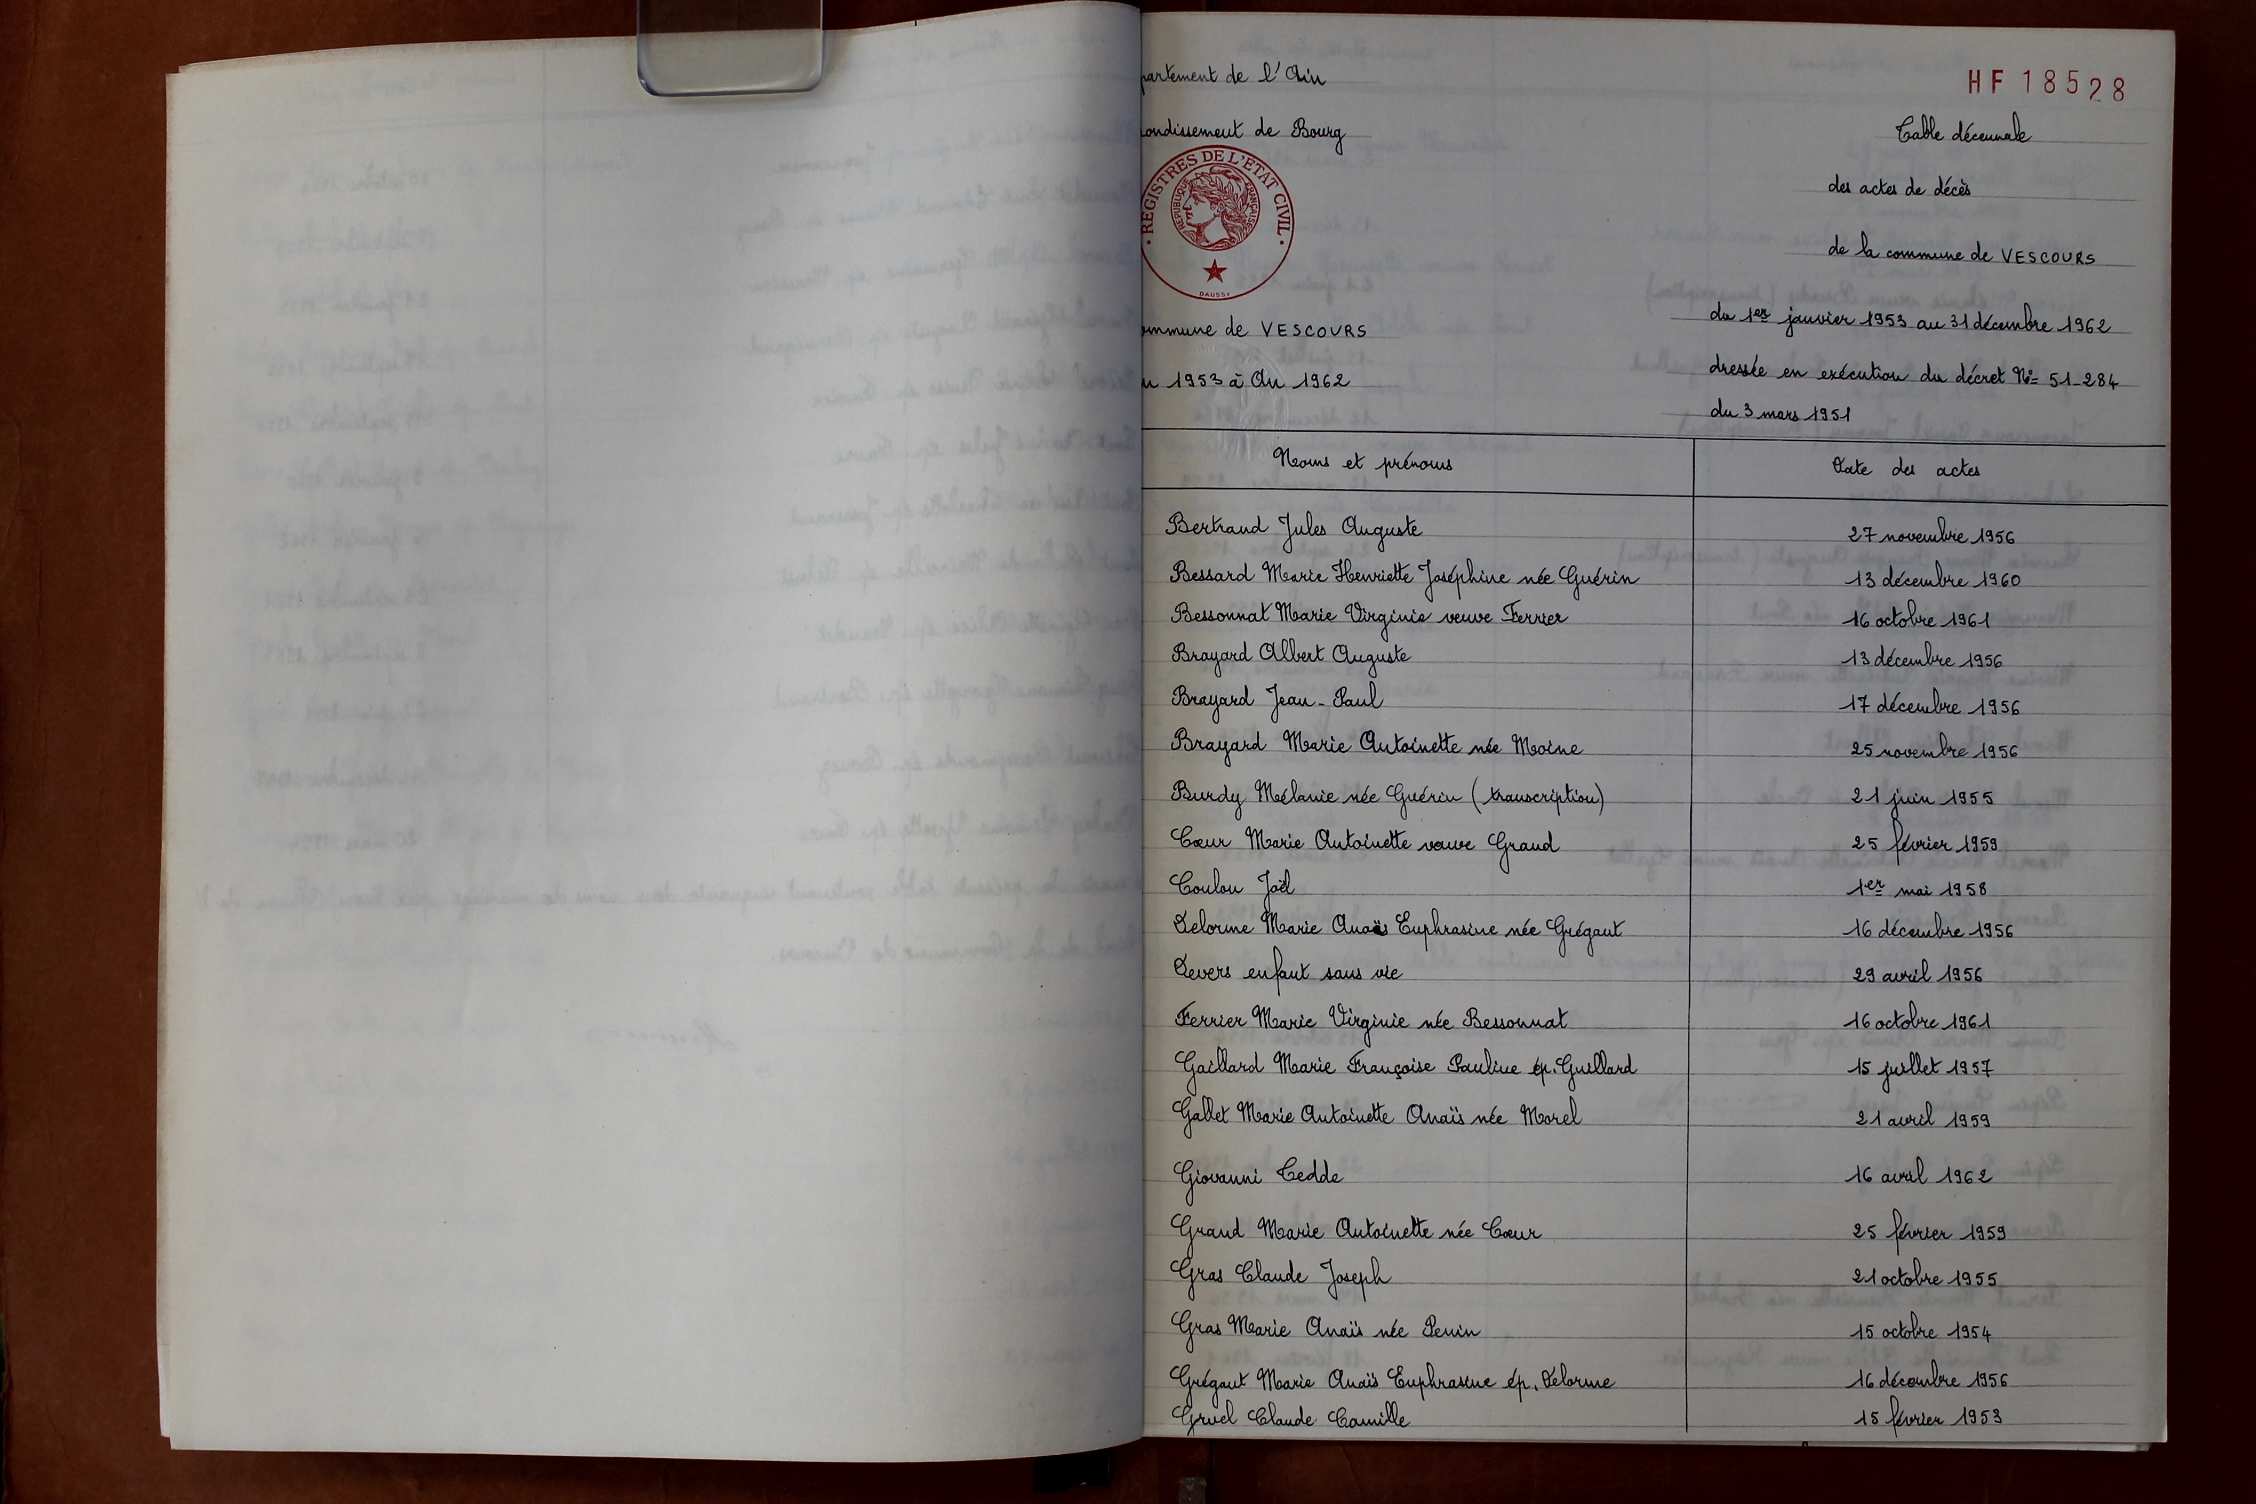 partement de l'Ain
HF 18528
ondissement de Bourg
Table décennale
REGISTRES DE L'ETAT CIVIL
REPUBLIQUE FRANÇAISE
DAUSSY
des actes de décès
de la commune de VESCOURS
ommune de VESCOURS
du 1er janvier 1953 au 31 décembre 1962
n 1953 à An 1962
dressée en exécution du décret N° 51-284
du 3 mars 1951
Noms et prénoms Date des actes
Bertrand Jules Auguste 27 novembre 1956
Bessard Marie Henriette Joséphine née Guérin 13 décembre 1960
Bessonnat Marie Virginie veuve Ferrier 16 octobre 1961
Brayard Albert Auguste 13 décembre 1956
Brayard Jean-Paul 17 décembre 1956
Brayard Marie Antoinette née Moine 25 novembre 1956
Burdy Mélanie née Guérin (transcription) 21 juin 1955
Cœur Marie Antoinette veuve Grand 25 février 1959
Coulon Joël 1er mai 1958
Delorme Marie Anaïs Euphrasine née Grégaut 16 décembre 1956
Devers enfant sans vie 29 avril 1956
Ferrier Marie Virginie née Bessonnat 16 octobre 1961
Gaillard Marie Françoise Pauline ép. Guillard 15 juillet 1957
Gallet Marie Antoinette Anaïs née Morel 21 avril 1959
Giovanni Cedde 16 avril 1962
Grand Marie Antoinette née Cœur 25 février 1959
Gras Claude Joseph 21 octobre 1955
Gras Marie Anaïs née Penin 15 octobre 1954
Grégaut Marie Anaïs Euphrasine ép. Delorme 16 décembre 1956
Gruel Claude Camille 15 février 1953